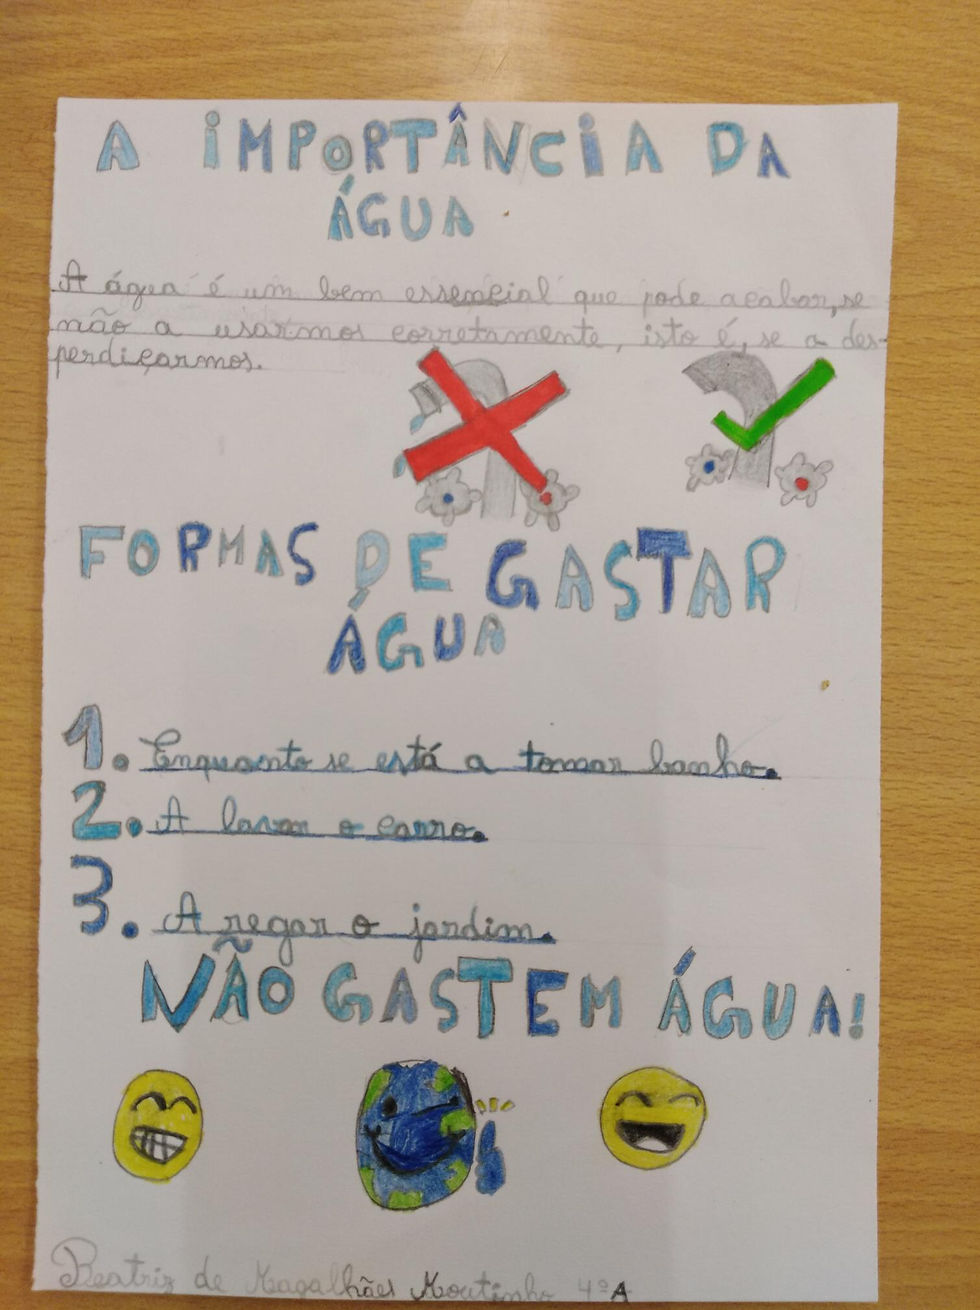 A IMPORTÂNCIA DA
ÁGUA
A água é um bem essencial que pode acabar, se
não a usarmos corretamente, isto é, se a des-
perdiçarmos.
FORMAS DE GASTAR
ÁGUA
1. Enquanto se está a tomar banho.
2. A lavar o carro.
3. A regar o jardim.
NÃO GASTEM ÁGUA!
Beatriz de Magalhães Moutinho 4ºA